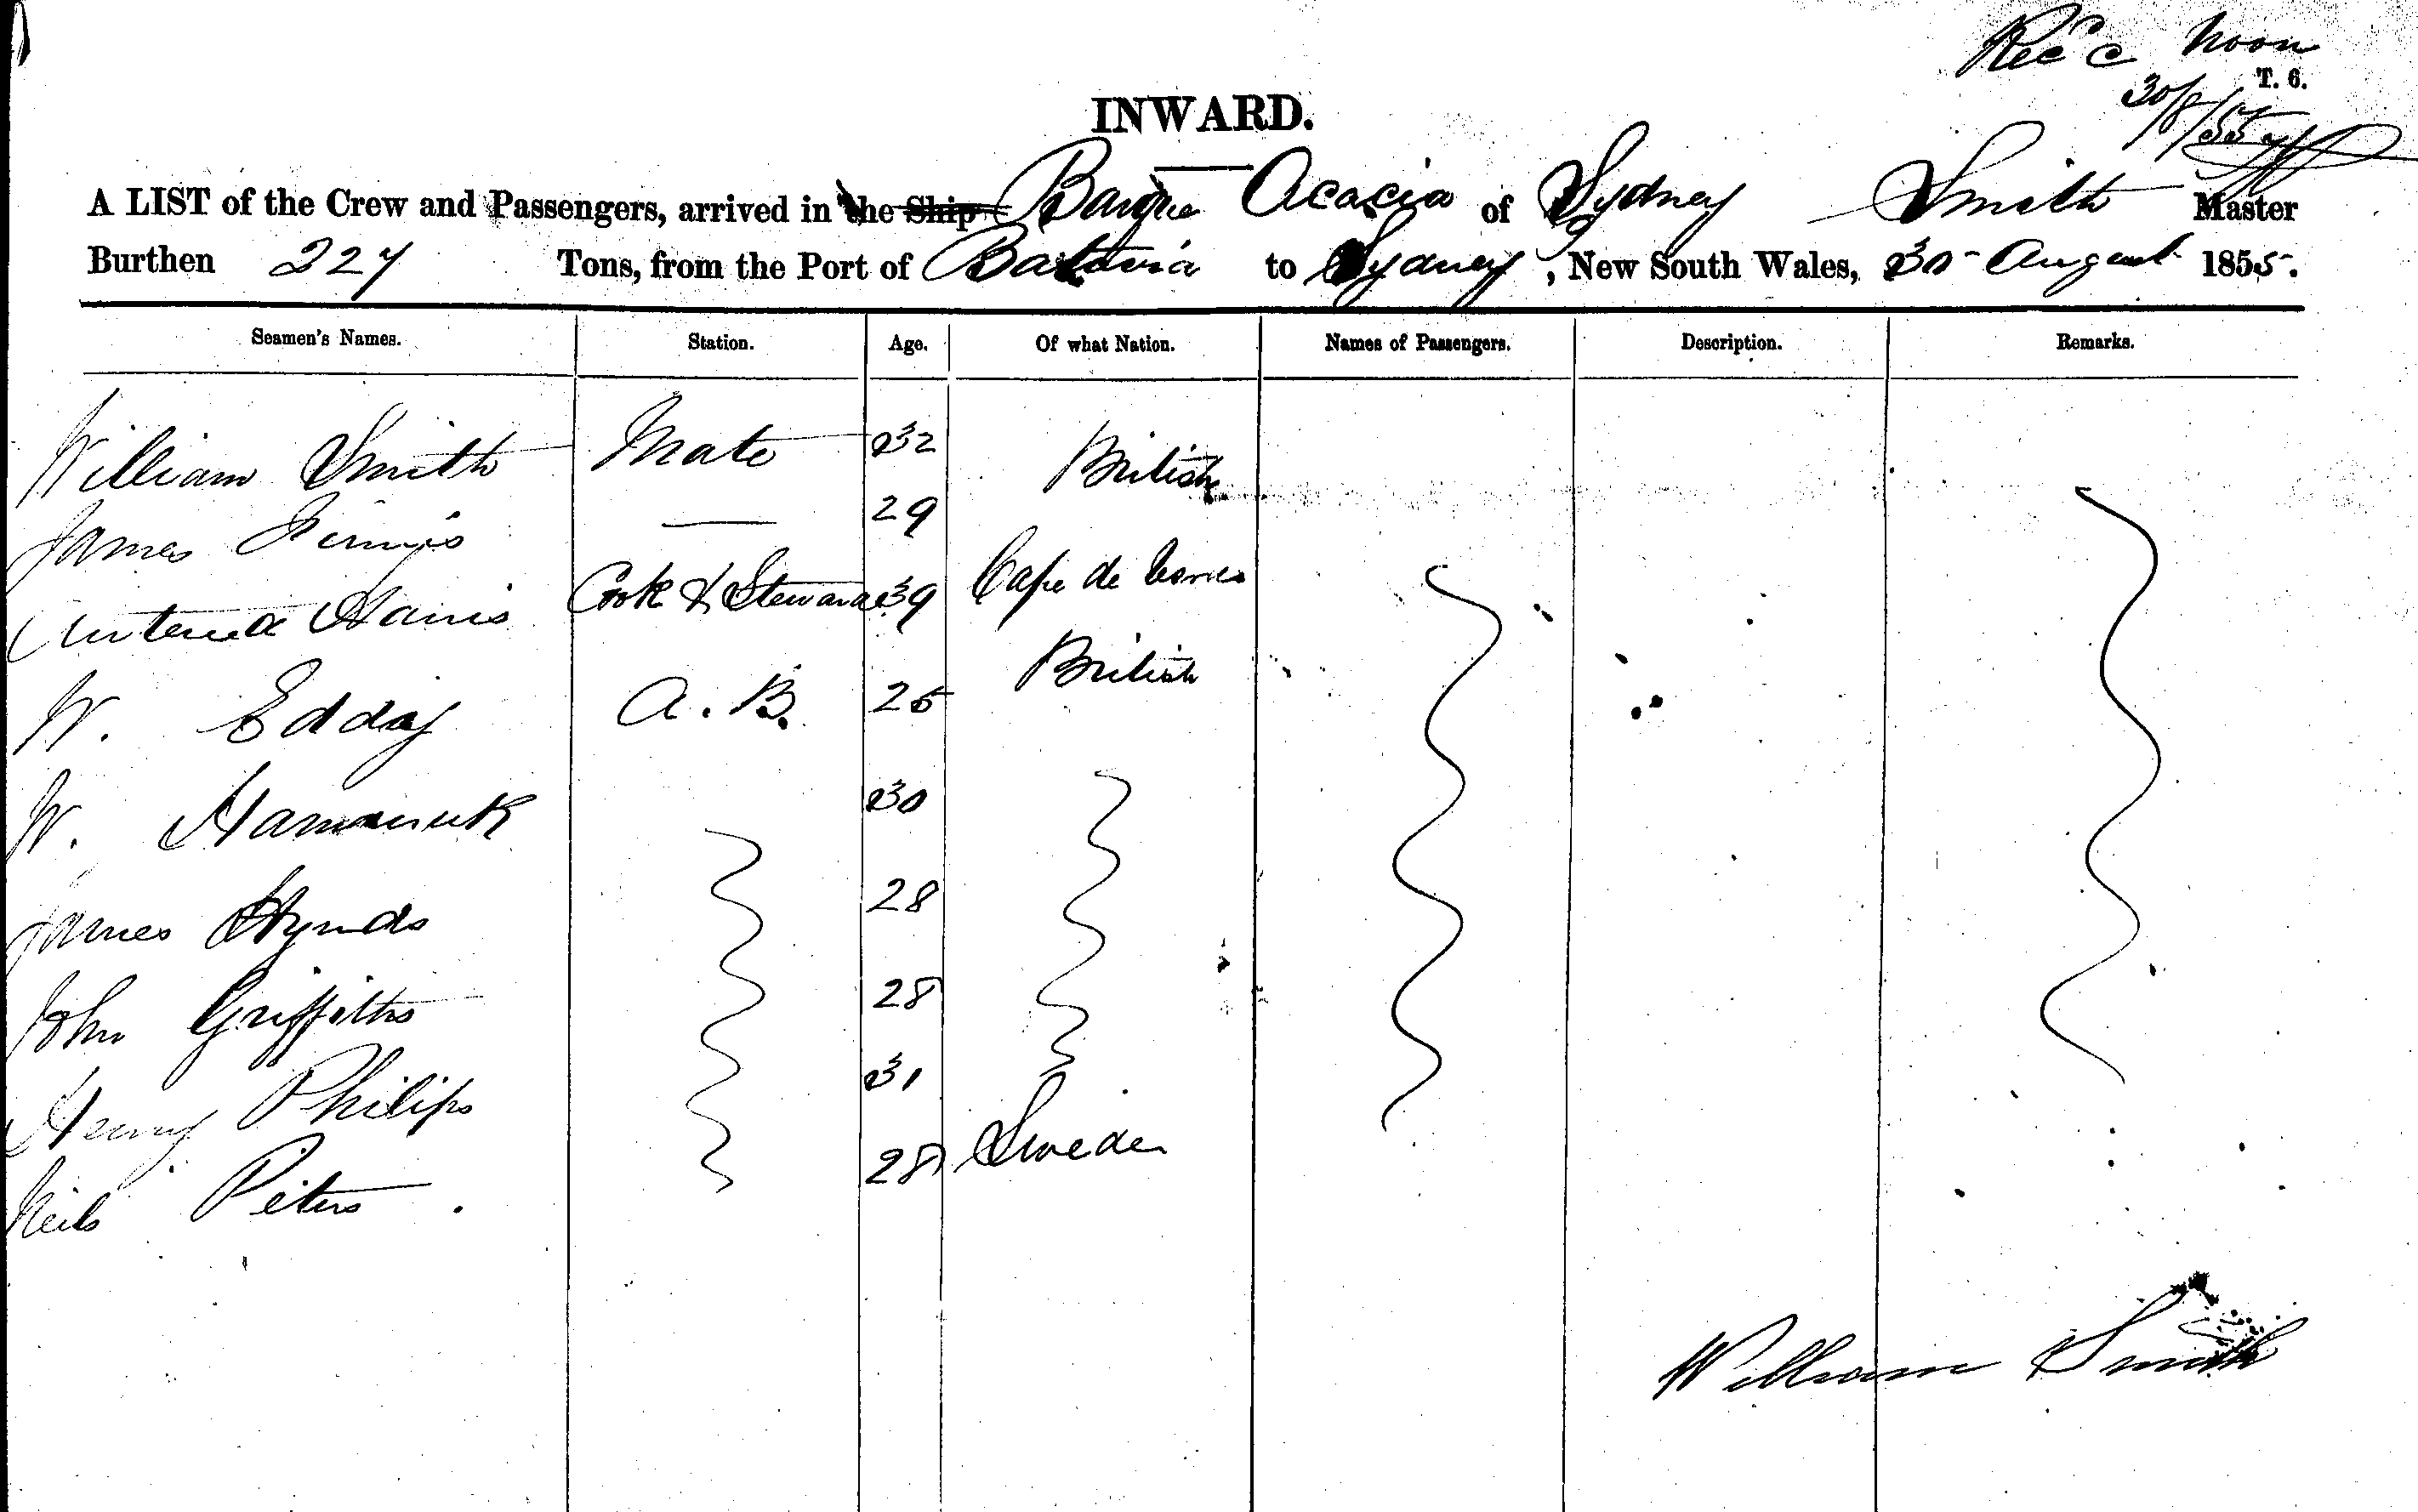 Rec'd Noon
T. 6.
30/8/55
INWARD.
A LIST of the Crew and Passengers, arrived in the Ship Barque Acacia of Sydney Smith Master
Burthen 227 Tons, from the Port of Batavia to Sydney, New South Wales, 30 August 1855.
Seamen's Names. Station. Age. Of what Nation. Names of Passengers. Description. Remarks.
William Smith Mate 32 British
James 29
Cook & Steward 39 Cape de
W. Eddy A. B. 25 British
W. 30
James Hynds 28
John Griffiths 28
Henry Philips 31
Neils Peters 28 Sweden
William Smith